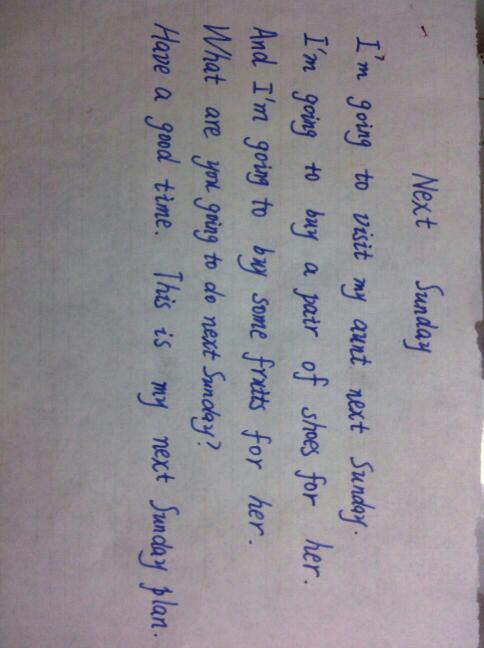 Next Sunday
I'm going to visit my aunt next Sunday.
I'm going to buy a pair of shoes for her.
And I'm going to buy some fruits for her.
What are you going to do next Sunday?
Have a good time. This is my next Sunday plan.